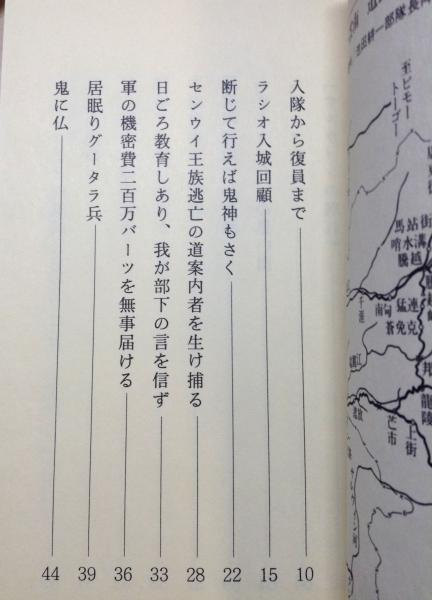 入隊から復員まで 10
ラシオ入城回顧 15
断じて行えば鬼神もさく 22
センウイ王族逃亡の道案内者を生け捕る 28
日ごろ教育しあり、我が部下の言を信ず 33
軍の機密費二百万バーツを無事届ける 36
居眠りグータラ兵 39
鬼に仏 44
至ピモー
トーゴー
龍陵
上街
芒市